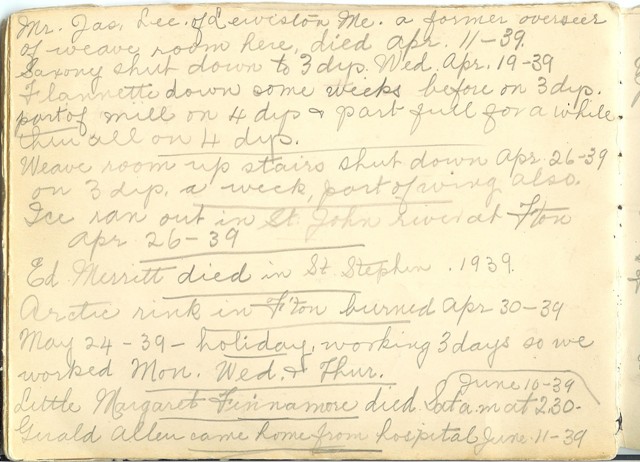 Mr. Jas. Lee. of Lewiston Me. a former overseer
of weave room here, died apr. 11-39.
Saxony shut down to 3 dys. Wed. Apr. 19-39
Flannette down some weeks before on 3 dys.
part of mill on 4 dys & part full for a while
then all on 4 dys.
Weave room up stairs shut down apr. 26-39
on 3 dys. a week, part of wing also.
Ice ran out in St. John river at F'ton
apr 26-39
Ed Merritt died in St Stephen. 1939.
Arctic rink in F'ton burned Apr 30-39
May 24-39- holiday, working 3 days so we
worked Mon. Wed. & Thur.
June 10-39
Little Margaret Finnamore died Sat a.m at 2.30-
Gerald Allen came home from hospital June-11-39